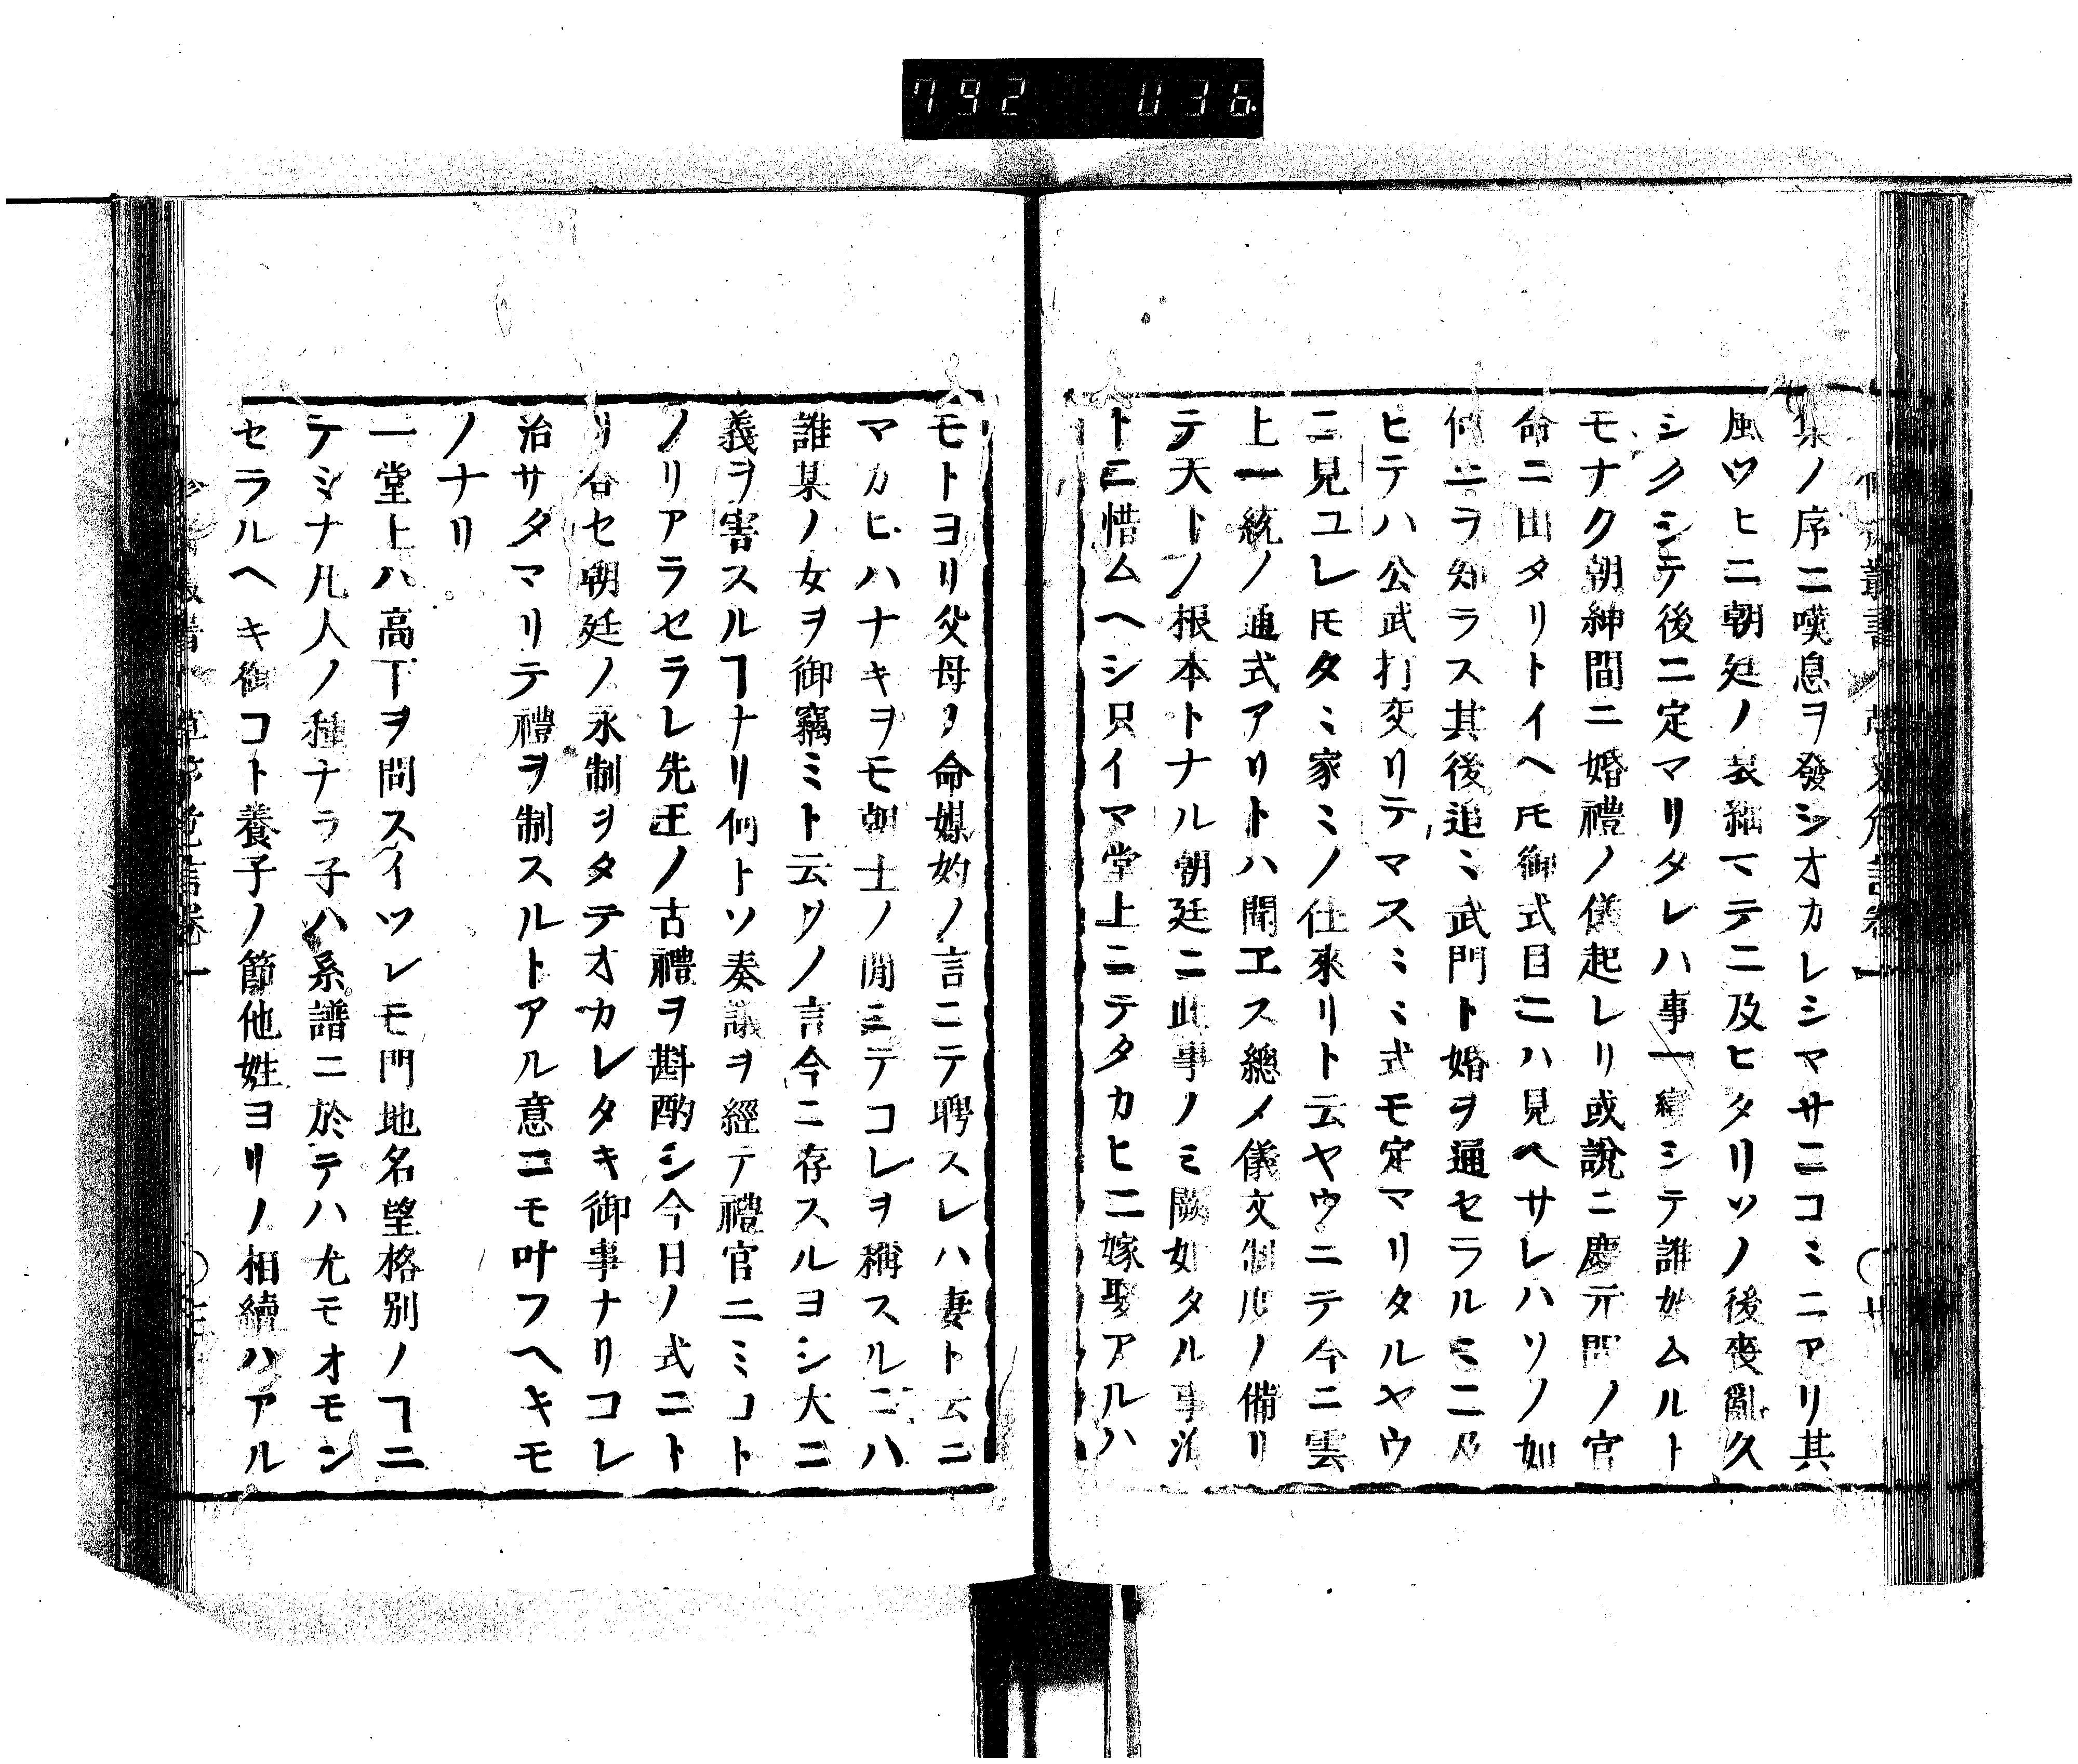 792 036
集ノ序ニ嘆息ヲ發シオカレシマサニコミニアリ其
風ツヒニ朝廷ノ裝綑マテニ及ヒタリソノ後喪亂久
シクシテ後ニ定マリタレハ事一繽シテ誰始ムルト
モナク朝紳間ニ婚禮ノ儀起レリ或說ニ慶元間ノ官
命ニ出タリトイヘ𪜈御式目ニハ見ヘサレハソノ如
何ニヲ知ラス其後追ミ武門ト婚ヲ通セラルミニ及
ヒテハ公武打交リテマスミミ式モ定マリタルヤウ
ニ見ユレ𪜈タミ家ミノ仕來リト云ヤウニテ今ニ雲
上一統ノ通式アリトハ聞ヱス總メ儀文制度ノ備リ
テ天下ノ根本トナル朝廷ニ此事ノミ闕如タル事洵
トニ惜ムヘシ只イマ堂上ニテタカヒニ嫁娶アルハ
モトヨリ父母ノ命媒妁ノ言ニテ聘スレハ妻ト云ニ
マカヒハナキヲモ朝士ノ間ニテコレヲ稱スルニハ
誰某ノ女ヲ御竊ミト云ワノ言今ニ存スルヨシ大ニ
義ヲ害スルヿナリ何トソ奏議ヲ經テ禮官ニミコト
ノリアラセラレ先王ノ古禮ヲ斟酌シ今日ノ式ニト
リ合セ朝廷ノ永制ヲタテオカレタキ御事ナリコレ
治サタマリテ禮ヲ制スルトアル意ニモ叶フヘキモ
ノナリ
一堂上ハ高下ヲ問スイツレモ門地名望格別ノヿニ
テミナ凡人ノ種ナラ子ハ系譜ニ於テハ尤モオモン
セラルヘキ御コト養子ノ節他姓ヨリノ相續ハアル